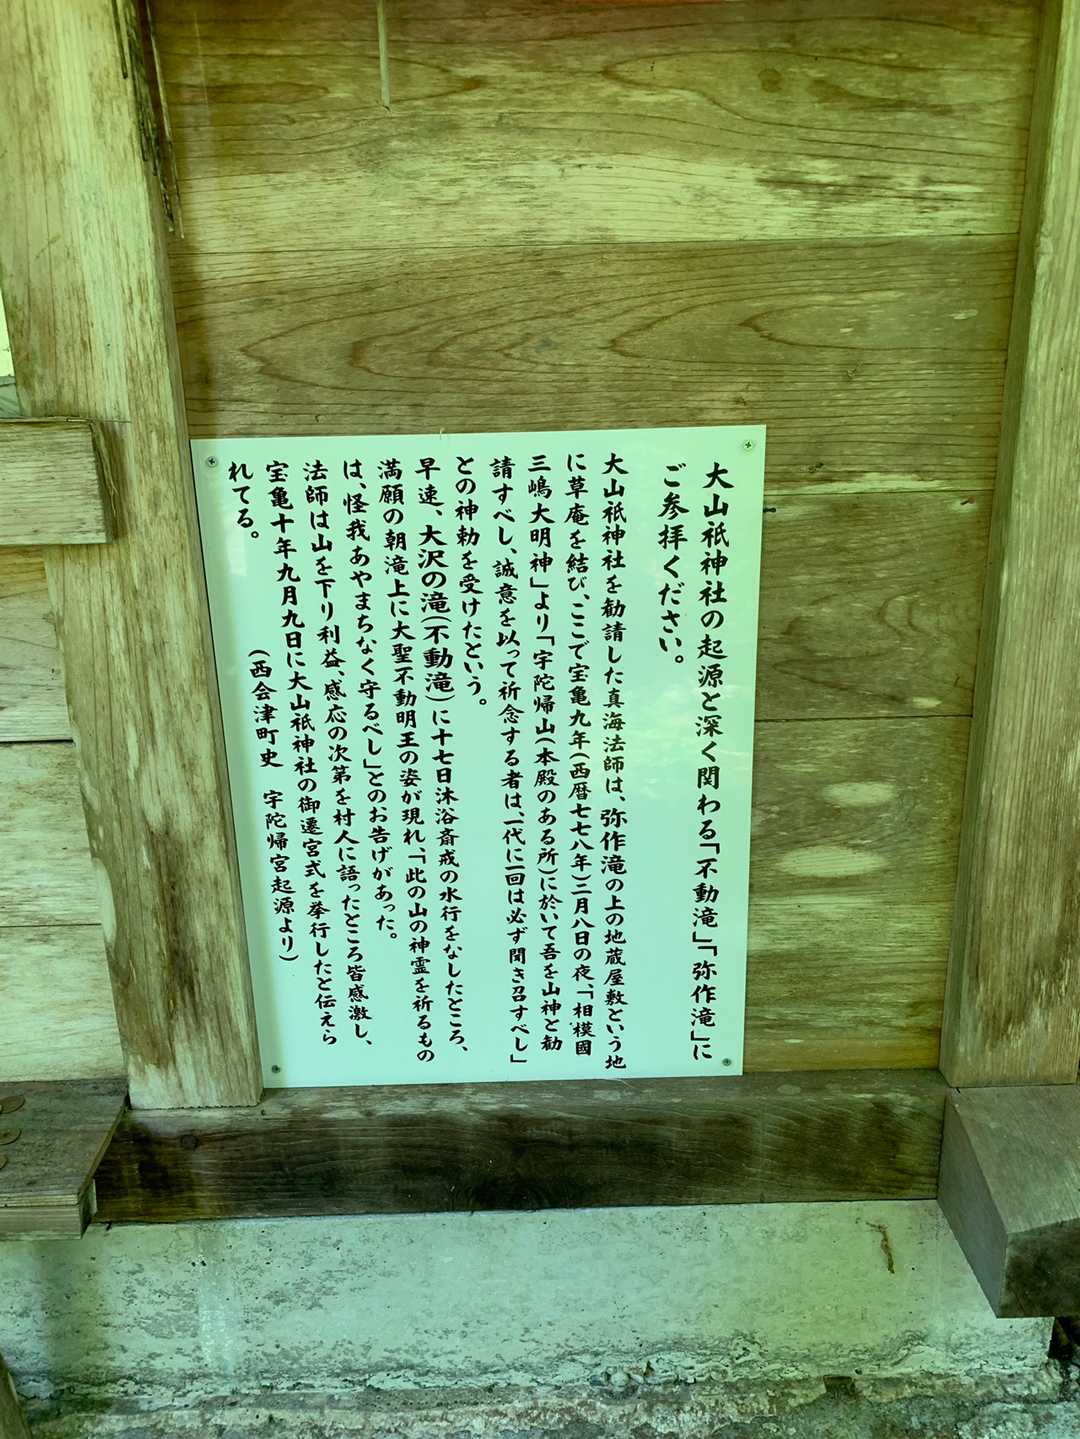 大山祇神社の起源と深く関わる「不動滝」「弥作滝」に
ご参拝ください。
大山祇神社を勧請した真海法師は、弥作滝の上の地蔵屋敷という地
に草庵を結び、ここで宝亀九年(西暦七七八年)三月八日の夜、「相模國
三嶋大明神」より「宇陀帰山(本殿のある所)に於いて吾を山神と勧
請すべし、誠意を以って祈念する者は、一代に一回は必ず聞き召すべし」
との神勅を受けたという。
早速、大沢の滝(不動滝)に十七日沐浴斎戒の水行をなしたところ、
満願の朝滝上に大聖不動明王の姿が現れ、「此の山の神霊を祈るもの
は、怪我あやまちなく守るべし」とのお告げがあった。
法師は山を下り利益、感応の次第を村人に語ったところ皆感激し、
宝亀十年九月九日に大山祇神社の御遷宮式を挙行したと伝えら
れてる。
(西会津町史 宇陀帰宮起源より)